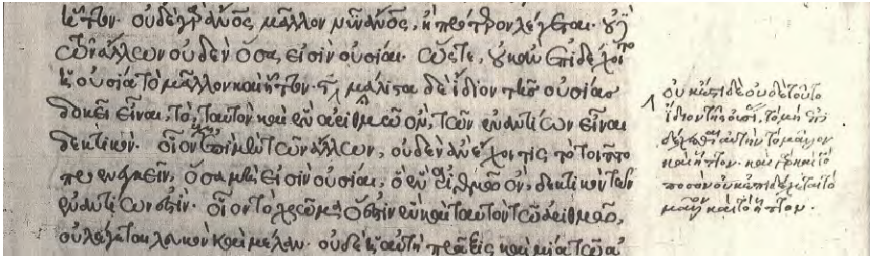 ἧττον· οὐδὲ γὰρ ἄνος μᾶλλον νῦν ἄνος, ἢ πρότερον λέγεται· οὐδὲ
τῶν ἄλλων οὐδὲν ὅσα εἰσὶν οὐσίαι· ὥστε, οὐκ ἂν ἐπιδέχοιτο
ἡ οὐσία τὸ μᾶλλον καὶ ἧττον· μάλιστα δὲ ἴδιον τῆς οὐσίας
δοκεῖ εἶναι, τὸ ταυτὸν καὶ ἓν ἀριθμῶ ὂν, τῶν ἐναντίων εἶναι
δεκτικόν· οἷον ἐπὶ μὲν τῶν ἄλλων, οὐδὲν ἂν ἔχοι τις τὸ τοιοῦτο
προενεγκεῖν, ὅσα μή εἰσιν οὐσίαι, ὃ ἓν ἀριθμῶ ὂν, δεκτικὸν τῶν
ἐναντίων ἐστίν· οἷον τὸ χρῶμα, ὅ ἐστιν ἓν καὶ ταυτὸν τῶ ἀριθμῶ,
οὐκ λευκὸν καὶ μέλαν· οὐδὲ ἡ αὐτὴ πρᾶξις καὶ μία τῶ ἀ
οὐκ ἔστι δὲ οὐδὲ τοῦτο
ἴδιον τῆς οὐσί, τὸ μὴ ἐπι
δέχεσθαι αὐτὴν τὸ μᾶλλον
καὶ ἧττον· καὶ γὰρ καὶ τὸ
ποσὸν οὐκ ἐπιδέχεται τὸ
μᾶλλον καὶ τὸ ἧττον·